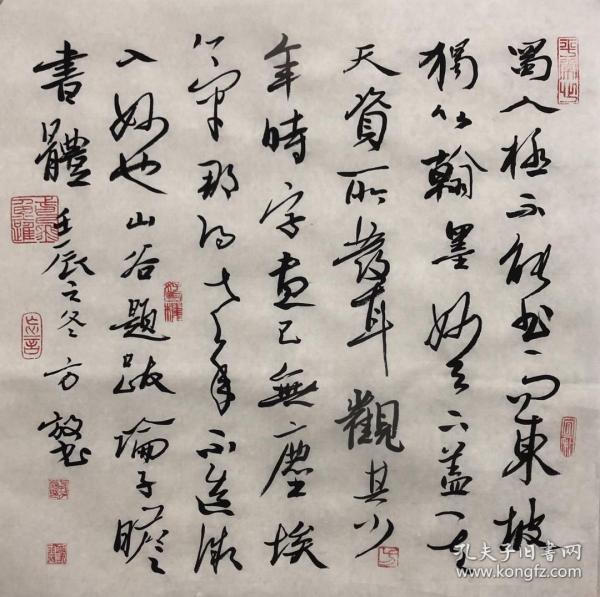 蜀人極不能书而東坡
獨以翰墨妙天下蓋其
天資所發耳觀其少
年時字畫已無塵埃
氣那得老年不造微
入妙也山谷題跋論子瞻
書體
壬辰之冬方书
忘言
孔夫子旧书网
www.kongfz.com